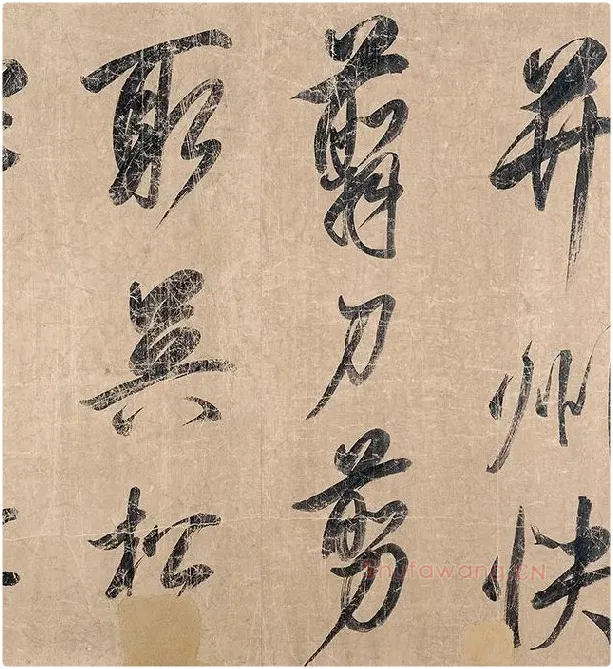 并州快
翦刀剪
取吴松
Shufawang.CN